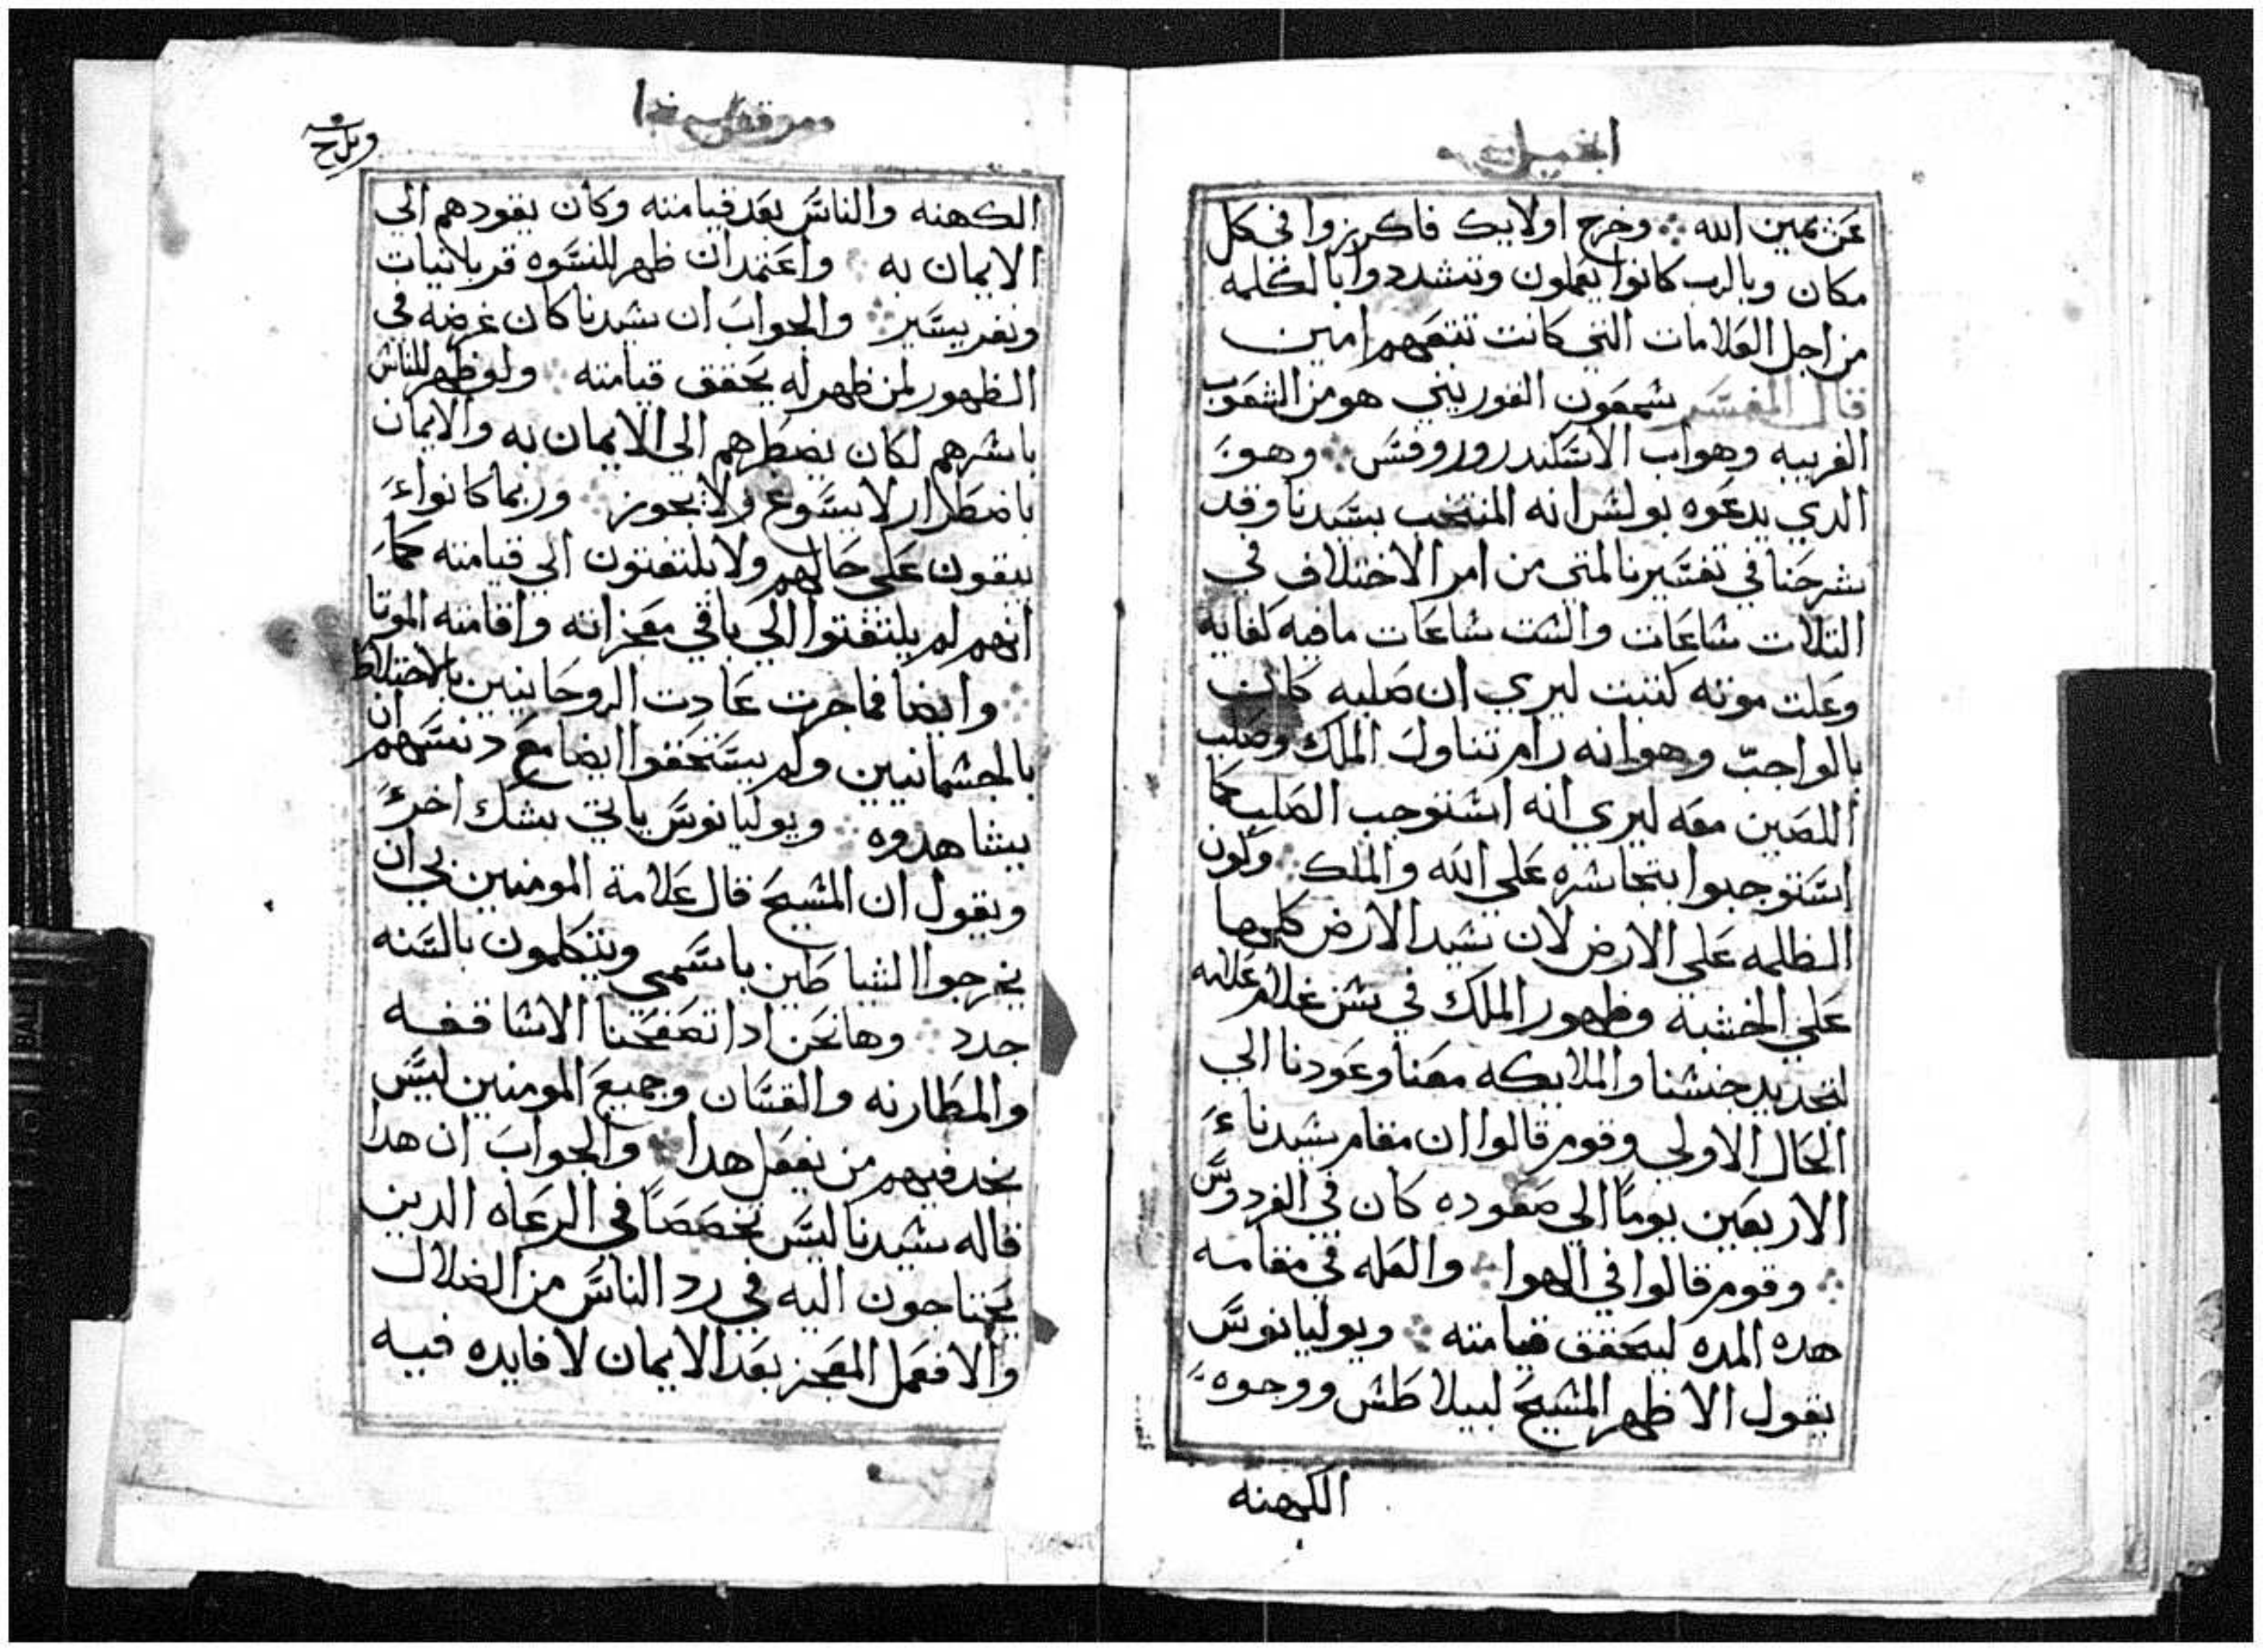 انجيل
عن يمين الله وخرج اولايك فاكرزوا في كل
مكان وبالرب كانوا يعملون وتتشددوا بالكلمه
من اجل العلامات التي كانت تتبعهم امين
قال المفسر شمعون القوريني هو من الشعوب
الغريبه وهو اب الاسكندر وروفس وهو
الدي يدعوه بولس انه المنتخب بسيدنا وقد
شرحنا في تفسيرنا لمتي من امر الاختلاف في
التلات ساعات والست ساعات ما فيه كفايه
وعلت موته كتبت ليري ان صلبه كانت
بالواجب وهو انه رام تناول الملك وصلب
اللصين معه ليري انه استوجب الصلب كما
استوجبوا بتجاسره علي الله والملك وكون
الظلمه علي الارض لان سيد الارض كلها
علي الخشبة وظهور الملك في سن غلام علامه
لتجديد جنسنا والملايكه معنا وعودنا الي
الحال الاولي وقوم قالوا ان مقام سيدنا
الاربعين يومًا الي صعوده كان في الفردوس
وقوم قالوا في الهوا والعله في مقامه
هده المده ليحقق قيامته ويوليانوس
يقول الا ظهر المسيح لبيلاطس ووجوه
الكهنه
مرقس
الكهنه والناس بعد قيامته وكان يقودهم الي
الايمان به واعتمد ان ظهر للنسوه قربانيات
ونفر يسير والجواب ان سيدنا كان غرضه في
الظهور لمن ظهر له يحقق قيامته ولو ظهر للناس
باسرهم لكان يضطرهم الي الايمان به والايمان
باضطرار لا يسوغ ولا يجوز وربما كانوا
يبقون علي حالهم ولا يلتفتون الي قيامته كما
انهم لم يلتفتوا الي باقي معجزاته واقامته الموتا
وايضا فما جرت عادت الروحانيين بالاختلاط
بالجسمانيين ولم يستحقوا ايضا مع دنسهم ان
يشاهدوه ويوليانوس ياتي بشك اخر
ويقول ان المسيح قال علامة المومنين بي ان
يخرجوا الشياطين باسمي ويتكلمون بالسنه
جدد وها نحن ادا تصفحنا الاساقفه
والمطارنه والقسان وجميع المومنين ليس
نجد فيهم من يفعل هدا والجواب ان هدا
قاله سيدنا ليس تخصصًا في الرعاه الدين
يحتاجون اليه في رد الناس من الضلال
والا فعمل المعجز بعد الايمان لا فايده فيه